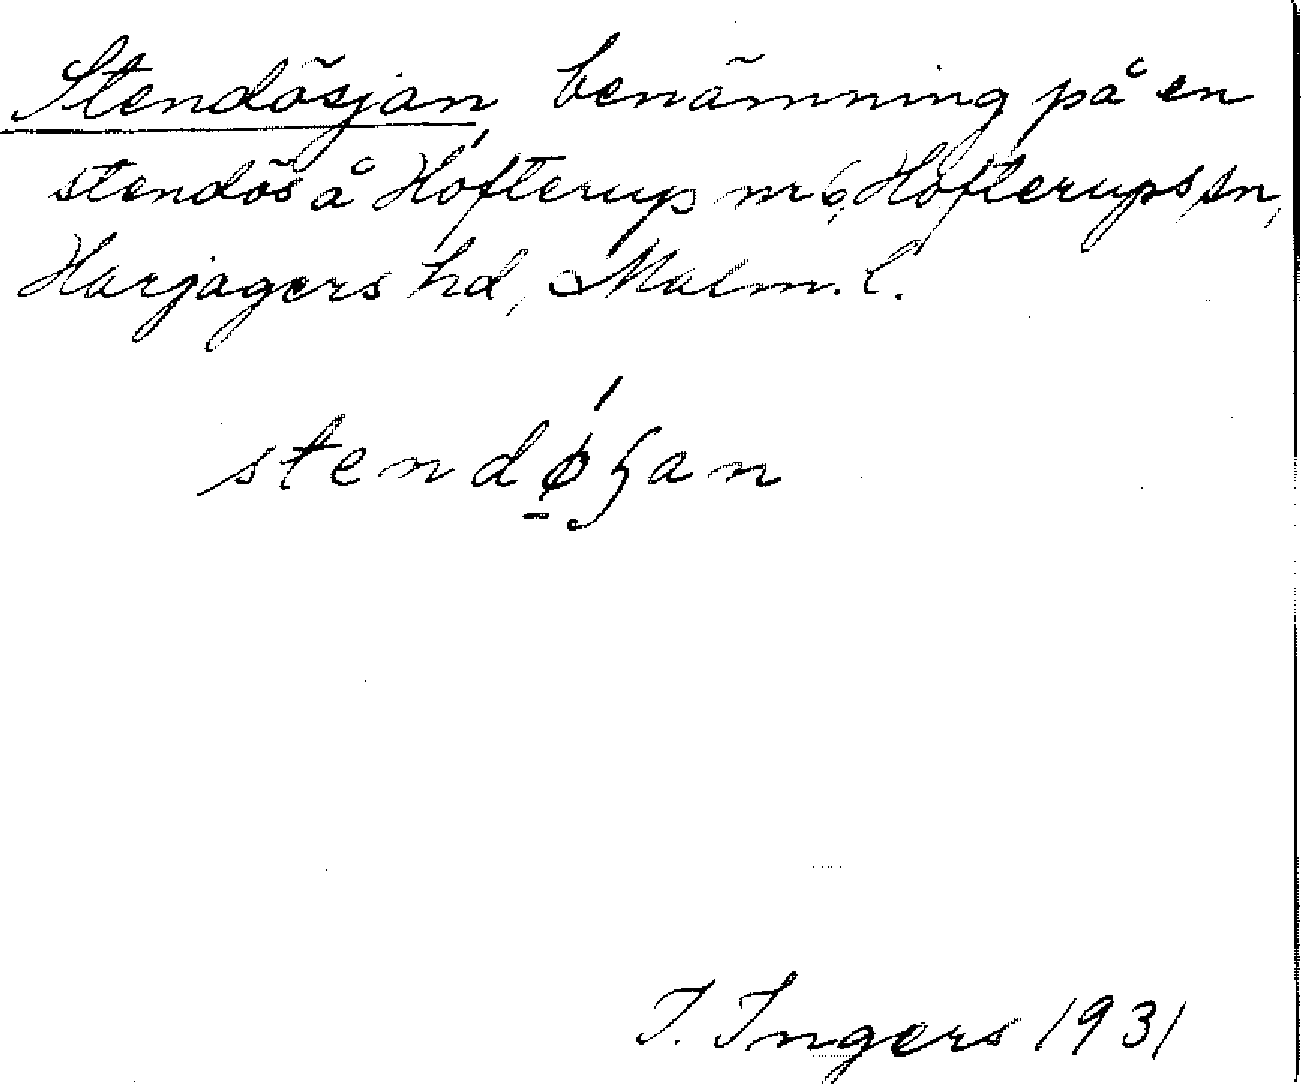 Stendösjan benämning på en
stendös å Hofterup nr 6, Hofterups sn,
Harjagers hd, Malm. l.
stendøʃan
I. Ingers 1931